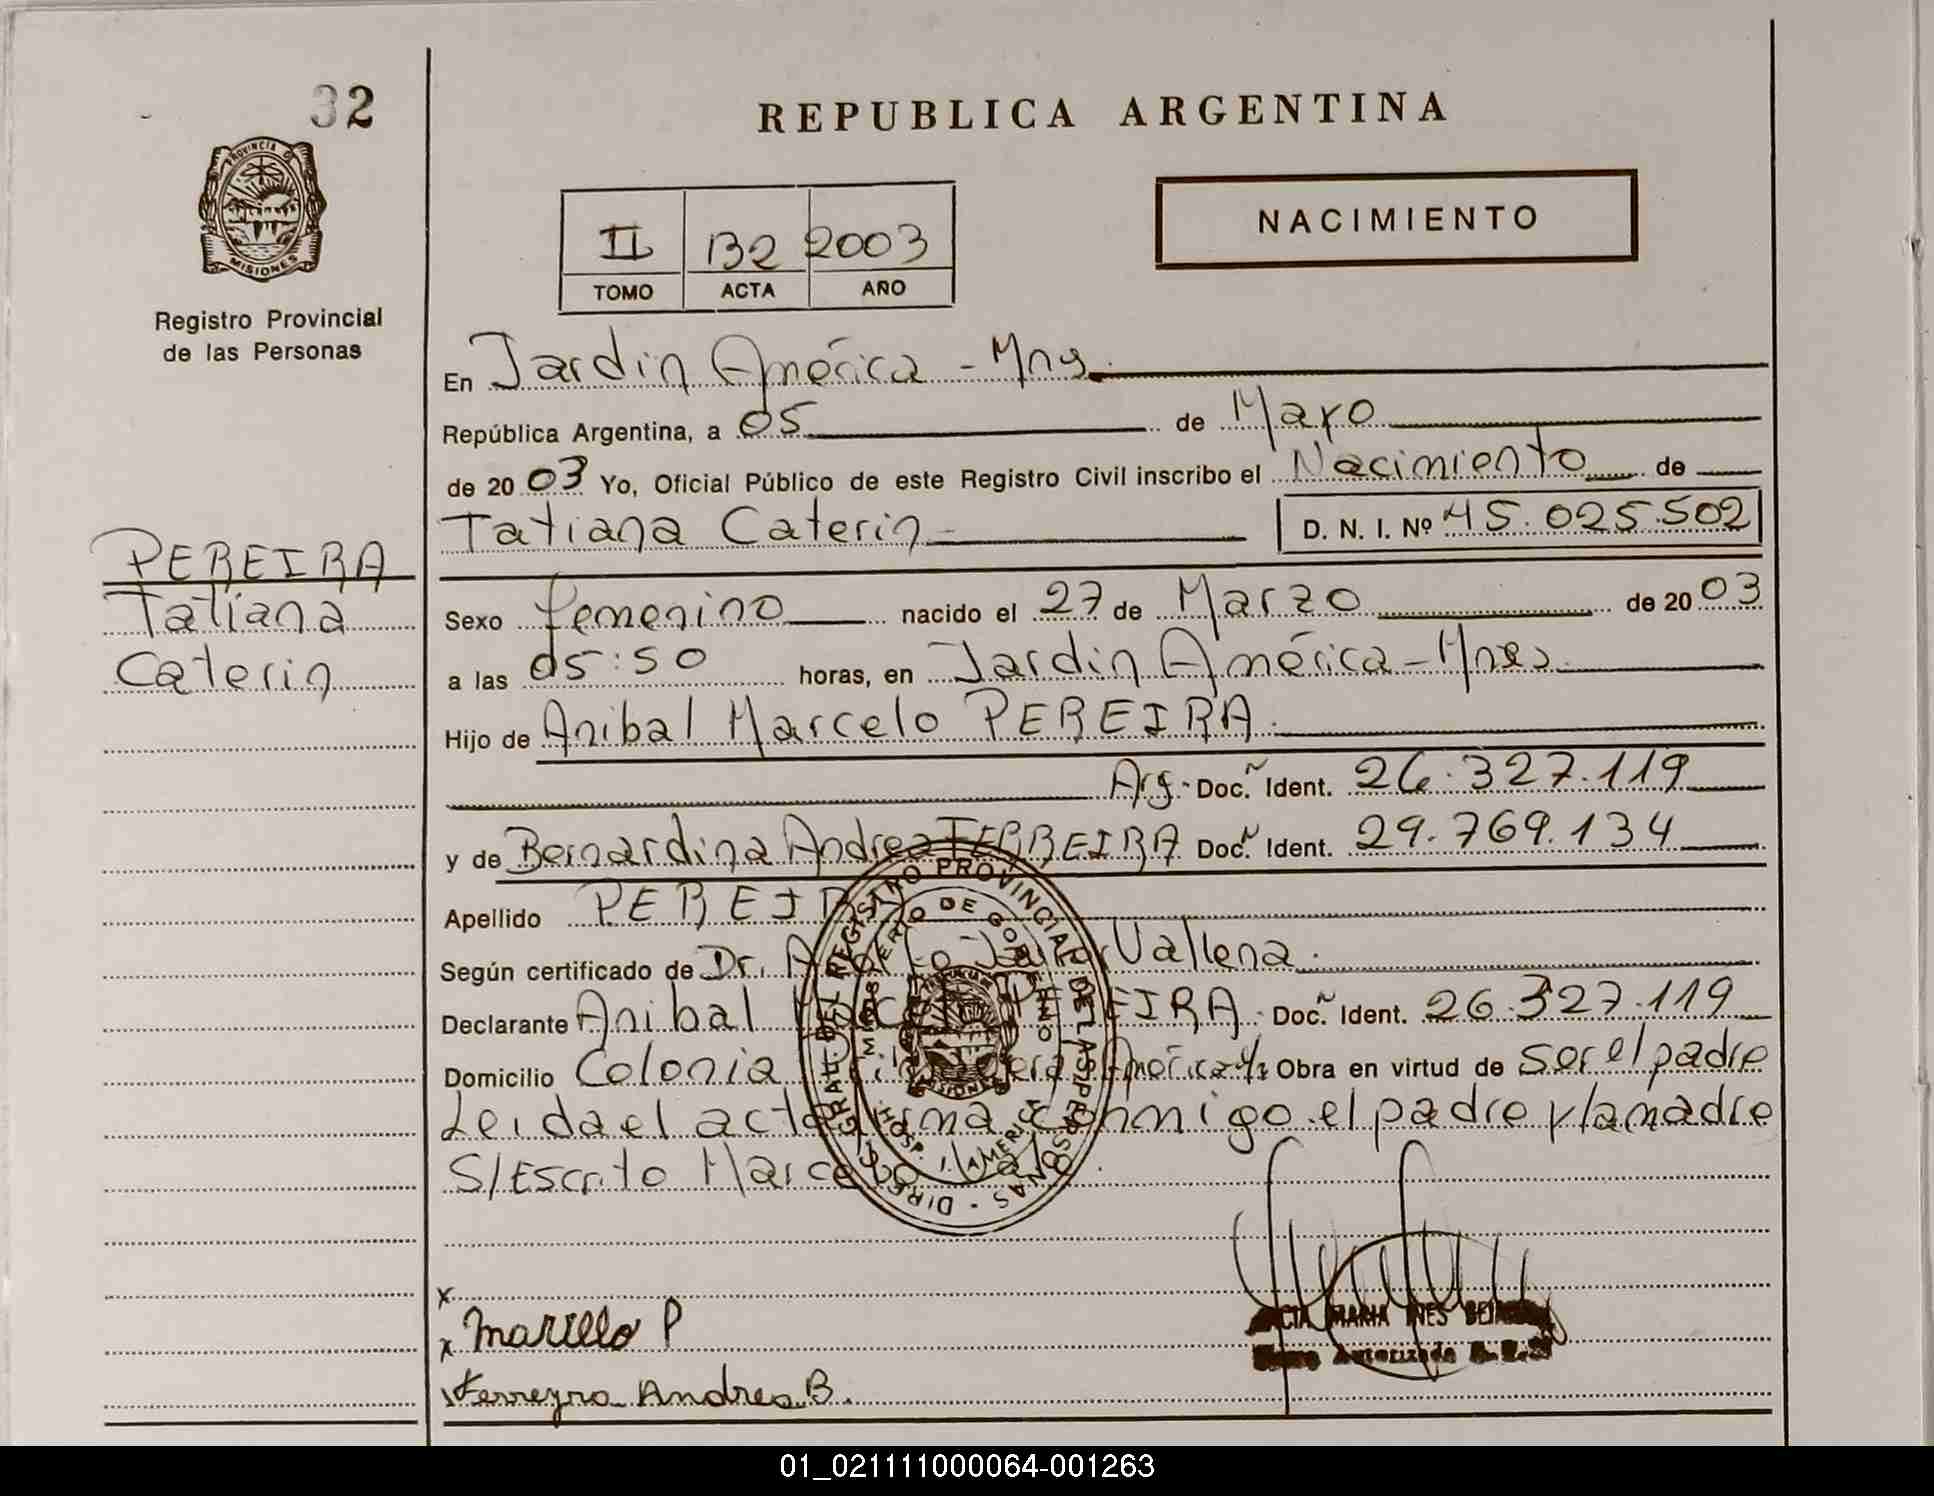 32
REPUBLICA ARGENTINA
PROVINCIA DE
MISIONES
Registro Provincial
de las Personas
NACIMIENTO
II 132 2003
TOMO ACTA AÑO
En Jardin América - Mns.
República Argentina, a 05 de Mayo
de 2003 Yo, Oficial Público de este Registro Civil inscribo el Nacimiento de
Tatiana Caterin D. N. I. Nº 45.025.502
PEREIRA
Tatiana
Caterin
Sexo femenino nacido el 27 de Marzo de 2003
a las 05:50 horas, en Jardin América - Mnes.
Hijo de Anibal Marcelo PEREIRA.
Arg. Doc. Ñ Ident. 26.327.119
y de Bernardina Andrea FERREIRA Doc. Ñ Ident. 29.769.134
Apellido PEREIRA
Según certificado de Dr. Vallena.
Declarante Anibal Marcelo PEREIRA. Doc. Ñ Ident. 26.327.119
Domicilio Colonia América Obra en virtud de ser el padre
Leida el acta firma conmigo el padre y la madre
S/Escrito Marcelo Vale.
DIREC. GRAL. DEL REGISTRO PROVINCIAL DE LAS PERSONAS
MINISTERIO DE GOBIERNO
HOSP. J. AMERICA
x
x Marcelo P
Ferreyra Andrea B.
MARIA INES
Autorizada
01_021111000064-001263